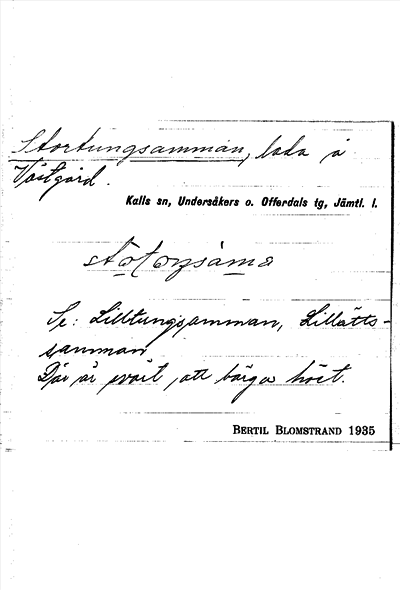 Stortungsamman, lada å
Västgård.
Kalls sn, Undersåkers o. Offerdals tg, Jämtl. l.
Se: Lilltungsamman, Lillätts-
samman
Där är svårt att bärga höet.
BERTIL BLOMSTRAND 1935